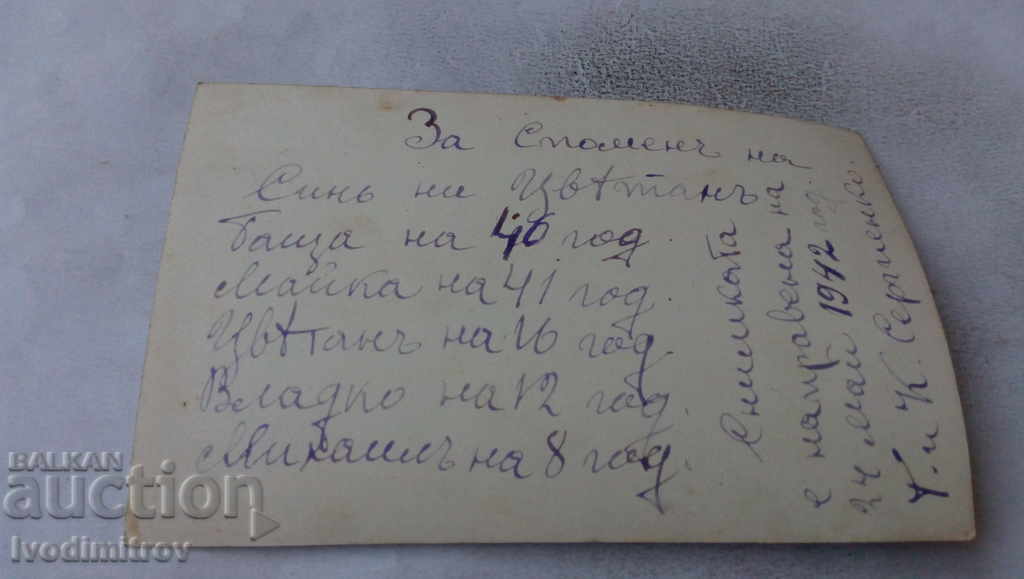 За Споменъ на
Синь ни Цвѣтанъ
Баща на 46 год.
Майка на 41 год.
Цвѣтанъ на 16 год.
Владко на 12 год.
Михаилъ на 8 год.
Снимката
е направена на
24 Май 1942 год.
и К. Сергиеньо.
BALKAN
auction
Ivodimitrov